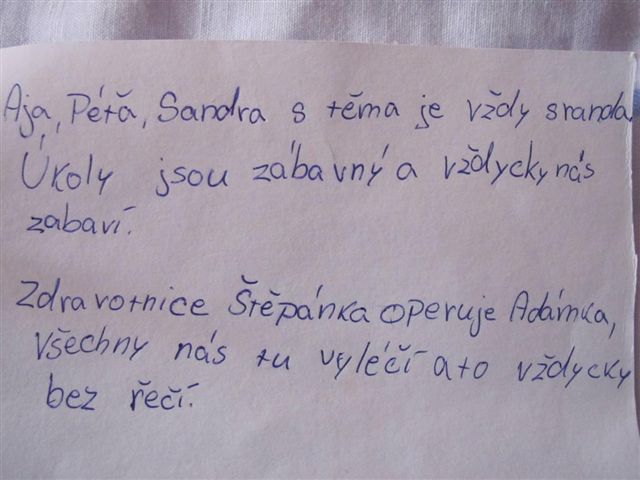 Aja, Péťa, Sandra s těma je vždy sranda.
Úkoly jsou zábavný a vždycky nás
zabaví.
Zdravotnice Štěpánka operuje Adámka,
všechny nás tu vyléčí a to vždycky
bez řečí.